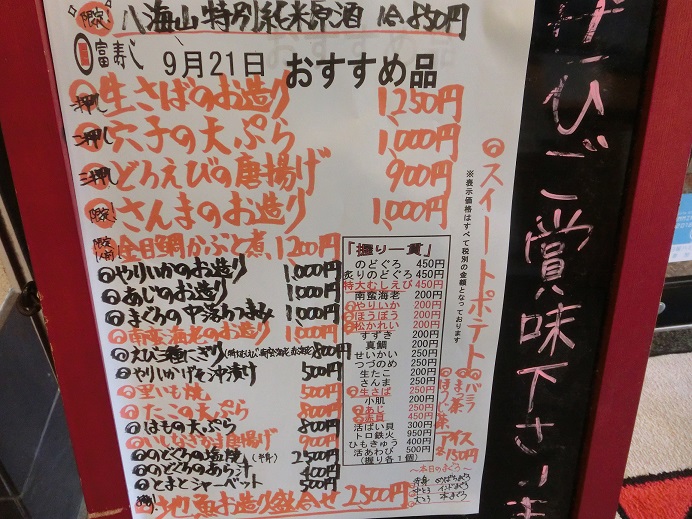 限定! 八海山 特別純米原酒 1合 850円
富寿し 9月21日 おすすめ品
一押し 生さばのお造り 1,250円
二押し 穴子の天ぷら 1,000円
三押し どろえびの唐揚げ 900円
限定! さんまのお造り 1,000円
限定 金目鯛かぶと煮 1200円
やりいかのお造り 1,000円
あじのお造り 1,000円
まぐろの中落ちつまみ 1,000円
南蛮海老のお造り 1,000円
えび三種にぎり 800円
やりいかげそ沖漬け 500円
里いも焼 500円
たこの天ぷら 800円
はもの天ぷら 800円
唐揚げ 900円
のどぐろの塩焼 (半身) 2500円
のどぐろのあら汁 400円
とまとシャーベット 500円
地魚お造り盛合せ 2,500円
「握り一貫」
のどぐろ 450円
炙りのどぐろ 450円
特大むしえび 450円
南蛮海老 200円
やりいか 200円
ほうぼう 200円
松かれい 200円
すずき 200円
真鯛 200円
せいかい 250円
つづのめ 250円
生たこ 200円
さんま 200円
生さば 250円
小肌 200円
あじ 250円
赤貝 450円
活ばい貝 300円
トロ鉄火 950円
ひもきゅう 400円
活あわび 500円
(握り各1個)
※表示価格はすべて税別の金額となっております
スイートポテト
バニラ
まっ茶
ほうじ茶
アイス
各150円
~本日のまぐろ~
赤身 めばちまぐろ
中とろ インドまぐろ
大とろ 本まぐろ
ぜひご賞味下さいませ